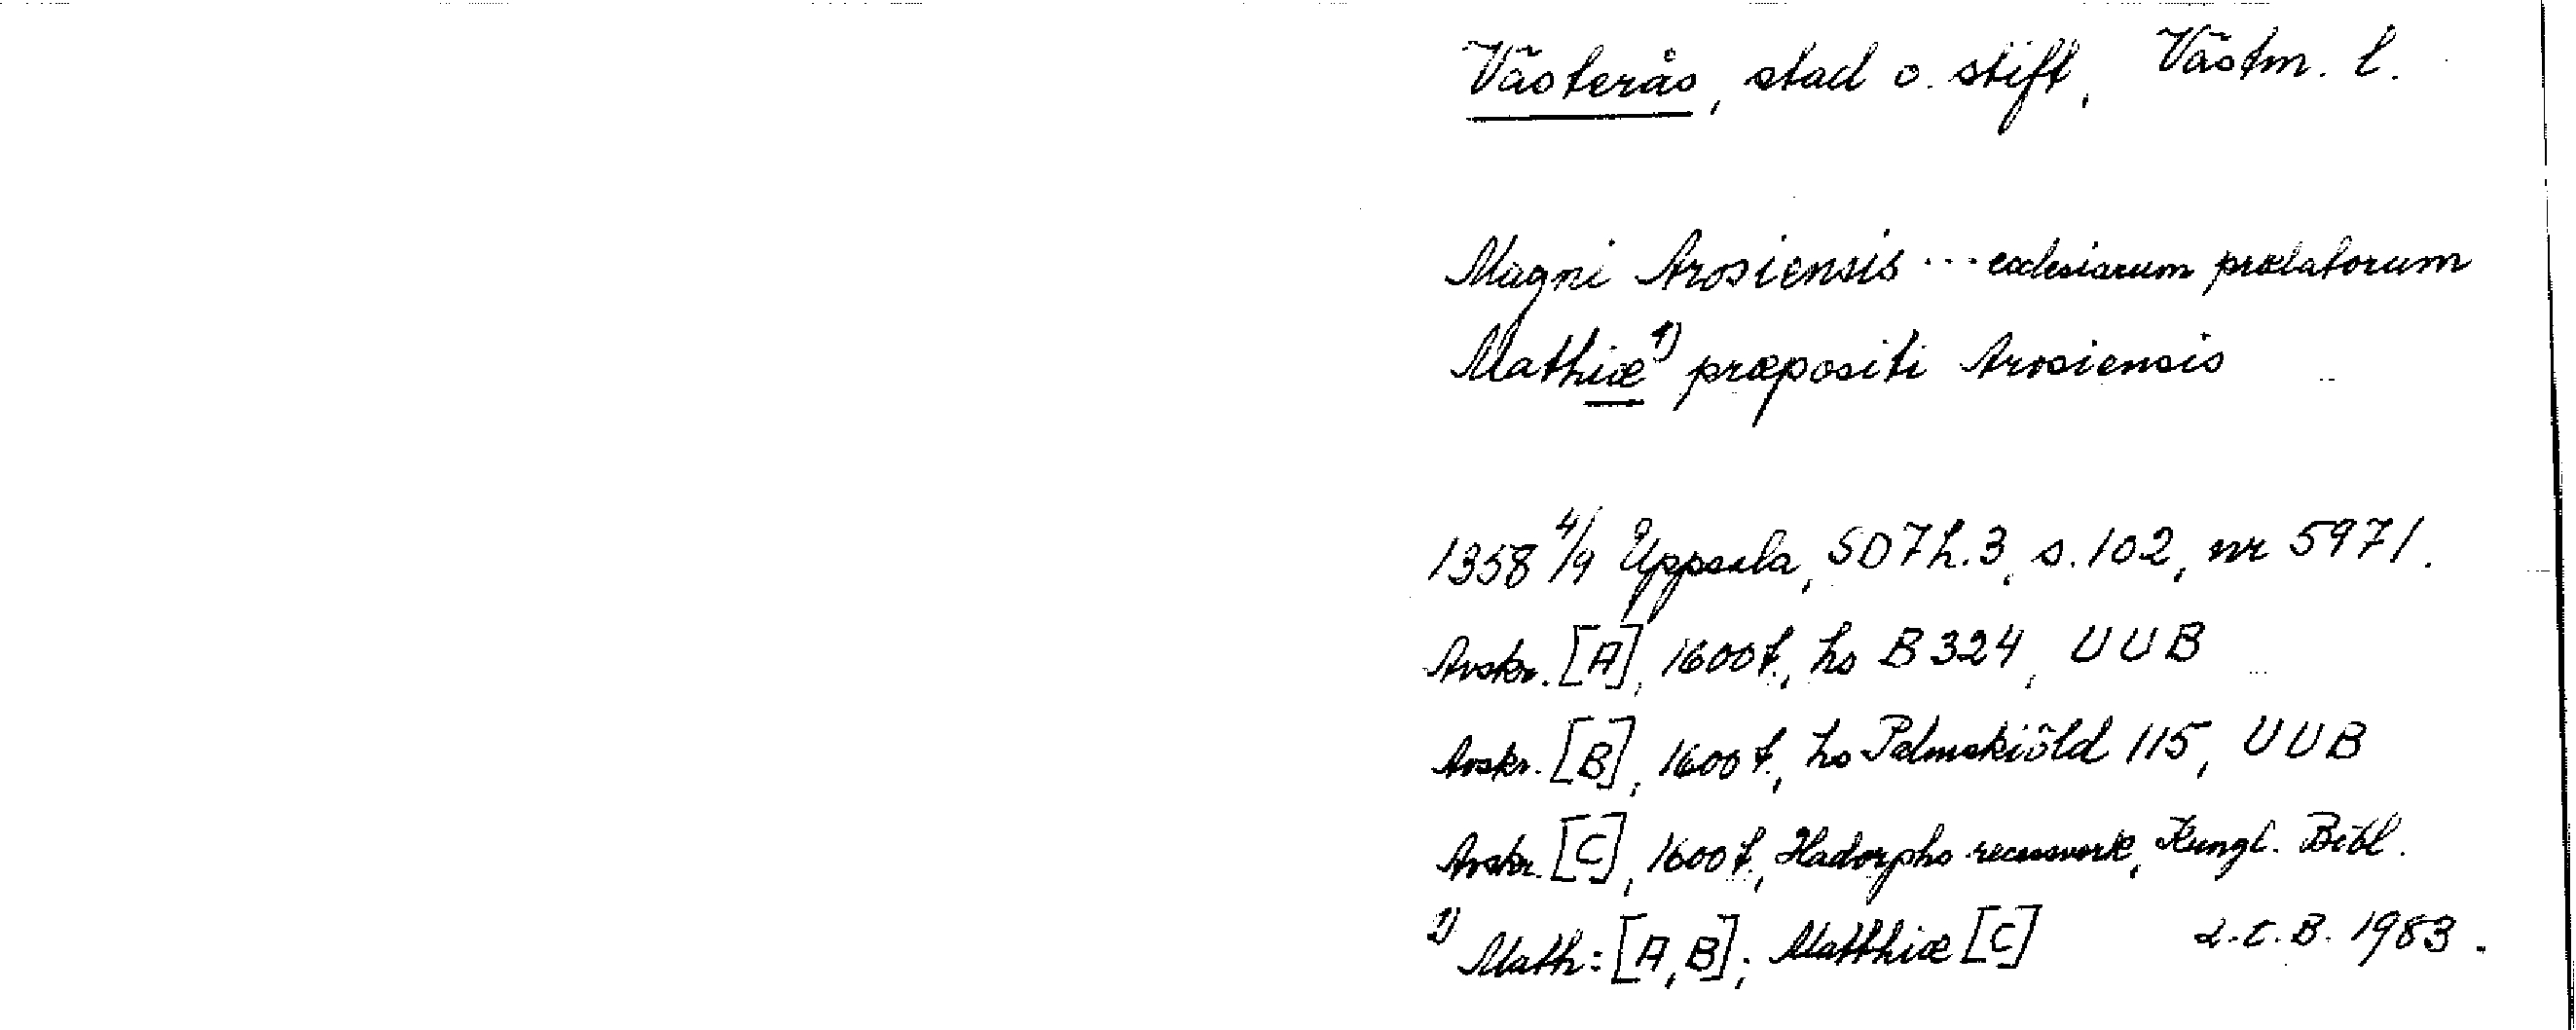 Västerås, stad o. stift, Västm. l.
Magni Arosiensis ... ecclesiarum prælatorum
Mathiæ 1) præpositi Arosiensis
1358 4/9 Uppsala, SD 7 h. 3, s. 102, nr 5971.
Avskr. [A], 1600 t., hs B 324, UUB
Avskr. [B], 1600 t., hs Palmskiöld 115, UUB
Avskr. [C], 1600 t., Hadorphs recessverk, Kungl. Bibl.
1) Math: [A, B]; Matthiæ [C] L.E.B. 1983.